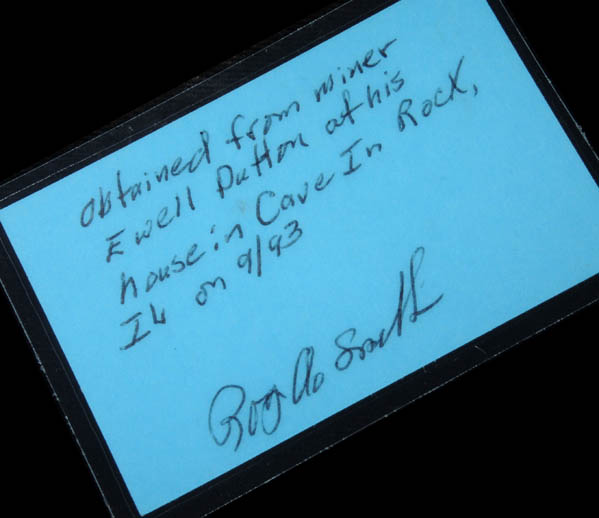 Obtained from miner
Ewell Dutton at his
house in Cave In Rock,
IL on 9/93
Roy Smith